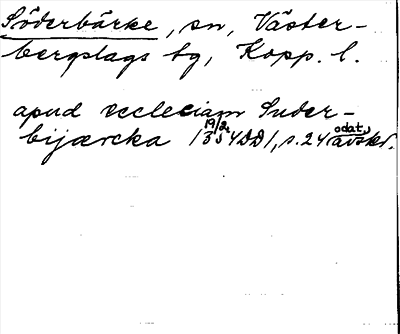 Söderbärke, sn, Väster-
bergslags tg, Kopp. l.
apud eccleciam Suder-
bijærcka 19/2 1354 DD1, s. 24 odat. avskr.